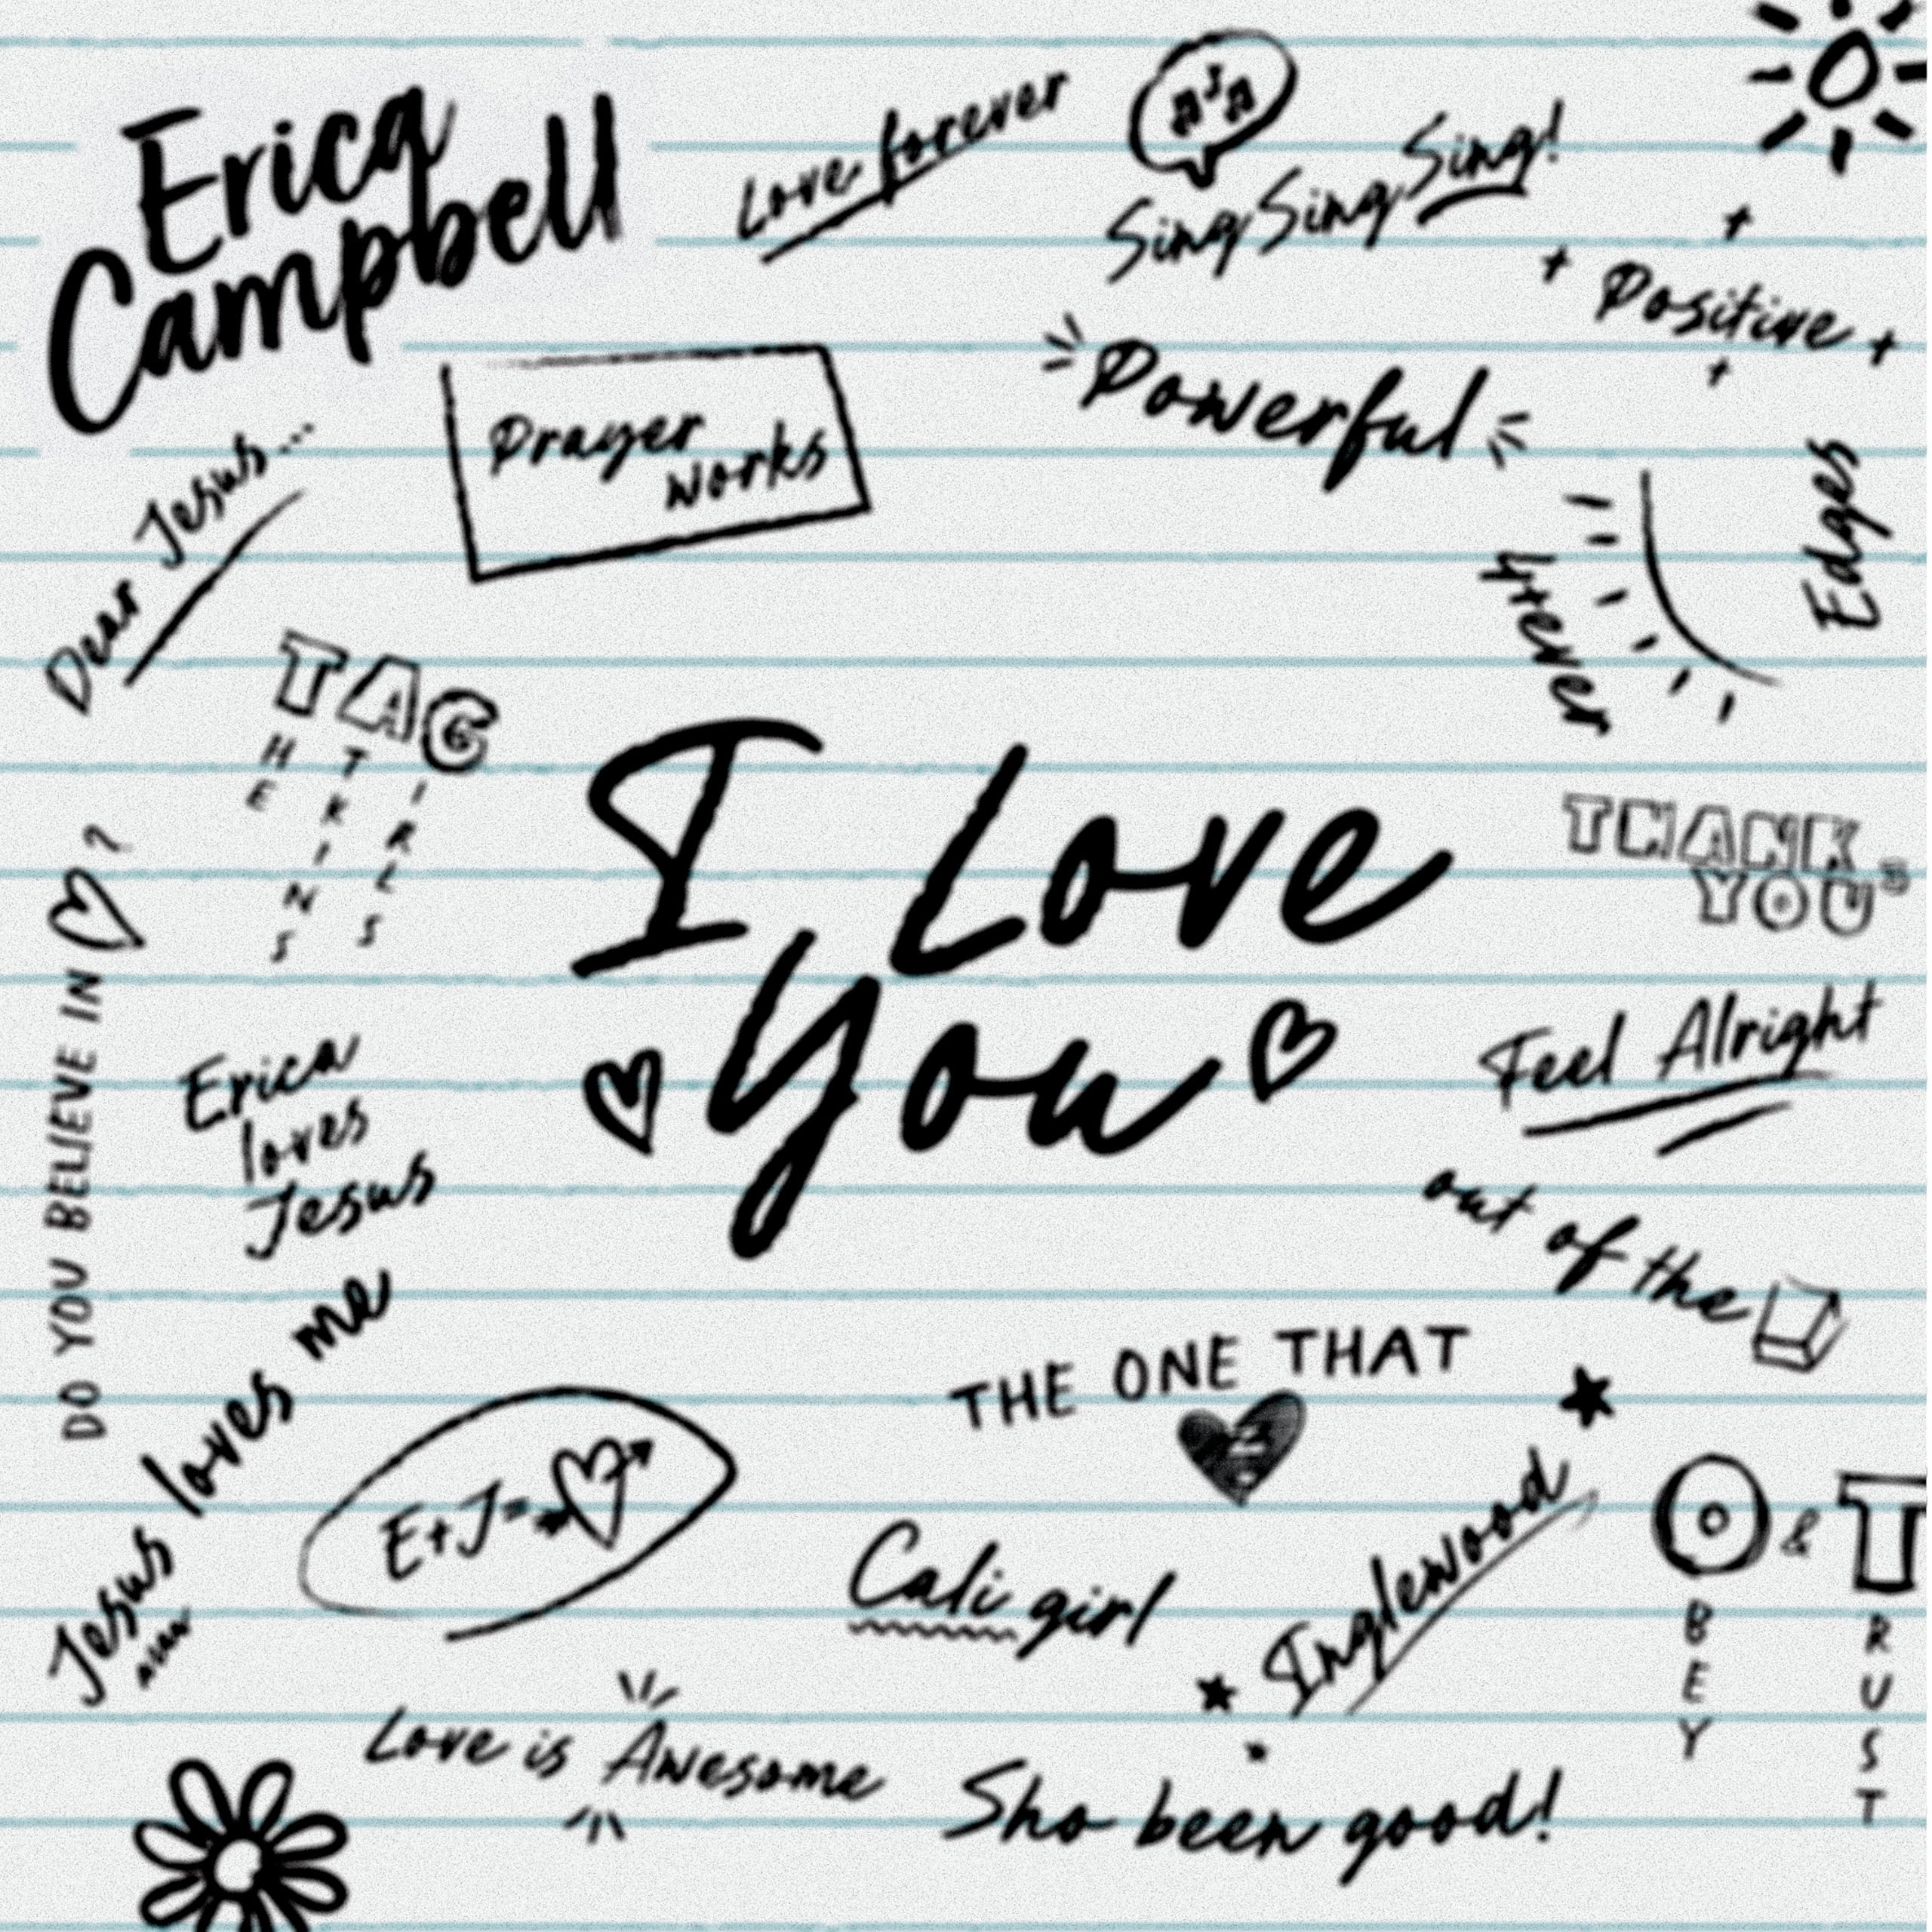 Erica
Campbell
Love forever
Sing Sing Sing!
+ Positive +
Powerful
Prayer
works
Dear Jesus...
4tever
Edges
TAG
THE
ATKINS
GIRLS
I Love
You
THANK
YOU
DO YOU BELIEVE IN ♡?
Erica
loves
Jesus
Feel Alright
out of the
Jesus loves me
THE ONE THAT
E+J=
Cali girl
Inglewood
O & T
BEY
RUST
Love is Awesome
Sho been good!